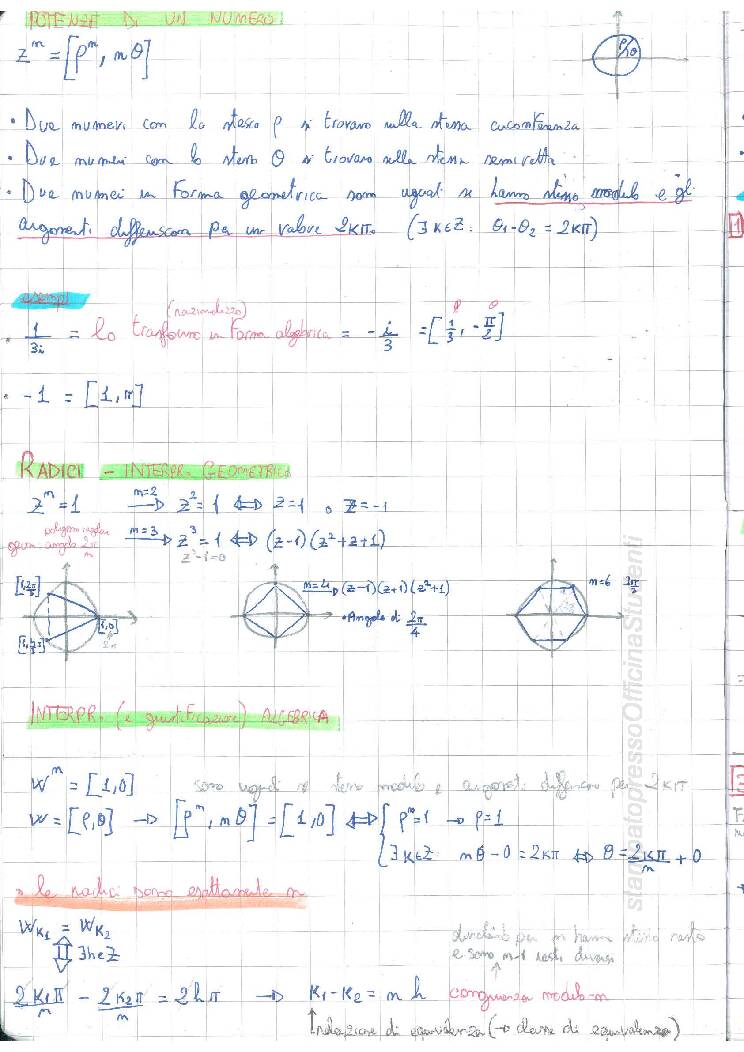 POTENZE DI UN NUMERO
zⁿ = [ρⁿ, nθ]
ρ θ
• Due numeri con lo stesso ρ si trovano sulla stessa circonferenza
• Due numeri con lo stesso θ si trovano sulla stessa semiretta
• Due numei in Forma geometrica sono uguali se hanno stesso modulo e gli
argomenti differiscono per un valore 2kπ. (∃ k∈Z: θ1-θ2 = 2kπ)
esempi
(razionalizzo) ρ θ
• 1/3i = lo trasformo in Forma algebrica = -i/3 = [1/3, -π/2]
• -1 = [1, π]
RADICI - INTERPR. GEOMETRICA
zⁿ = 1 n=2 → z² = 1 ⇔ z=1 o z=-1
poligono regolare
angolo 2π/n n=3 → z³ = 1 ⇔ (z-1)(z²+z+1)
z³-1=0
[1, 2π/3] [1,0]
n=4 → (z-1)(z+1)(z²+1)
• Angolo di 2π/4
n=6
INTERPR. (e giustificazione) ALGEBRICA
wⁿ = [1,0] sono uguali se stesso modulo e argomenti differiscono per 2kπ
w = [ρ,θ] → [ρⁿ, nθ] = [1,0] ⇔ { ρⁿ=1 → ρ=1
∃ k∈Z nθ - 0 = 2kπ ⇔ θ = 2kπ/n + 0
le radici sono esattamente n
Wk1 = Wk2
⇕ ∃h∈Z
dividendo per n hanno stesso resto
e sono n-1 resti diversi
2k1π/n - 2k2π/n = 2hπ → k1 - k2 = n h congruenza modulo-n
relazione di equivalenza (→ classe di equivalenza)
stampatopressoOfficinaStudenti